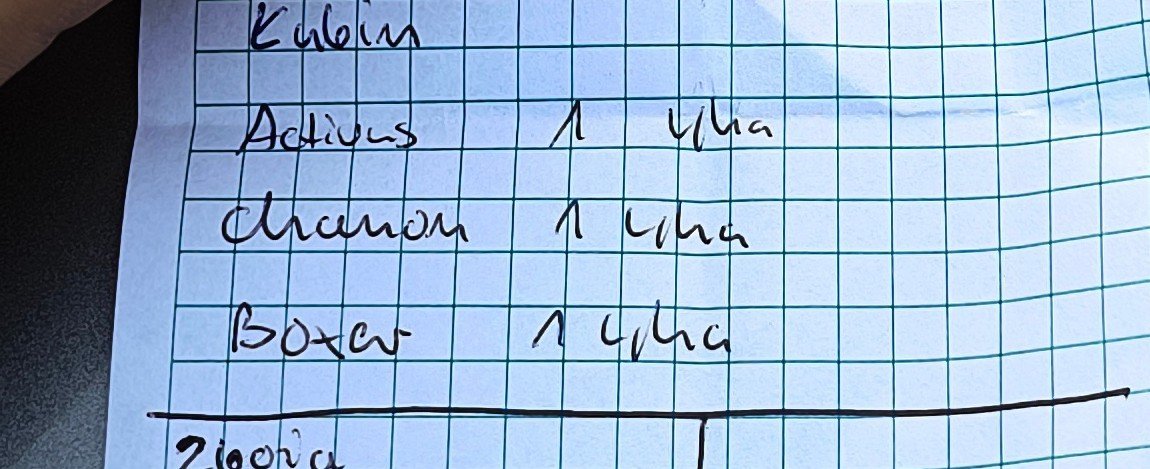 Kubin
Activus 1 l/ha
chanon 1 l/ha
Boxer 1 l/ha